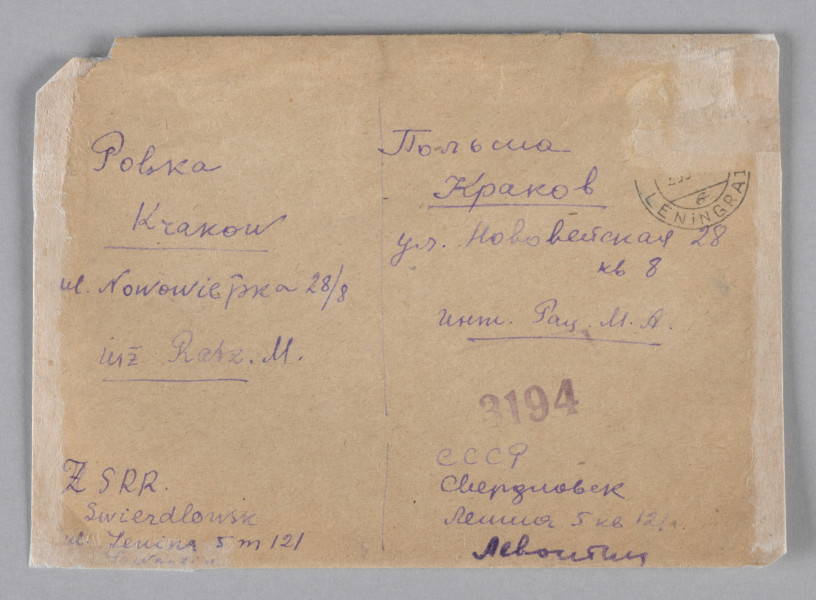 Polska
Krakow
ul. Nowowiejska 28/8
inż Ratz. M.
Z SRR.
Swierdlowsk
ul. Lenina 5 m 121
Польша
Краков
ул. Нововейская 28
кв 8
инж. Рац. М. А.
LENINGRA
3194
СССР
Свердловск
Ленина 5 кв 121